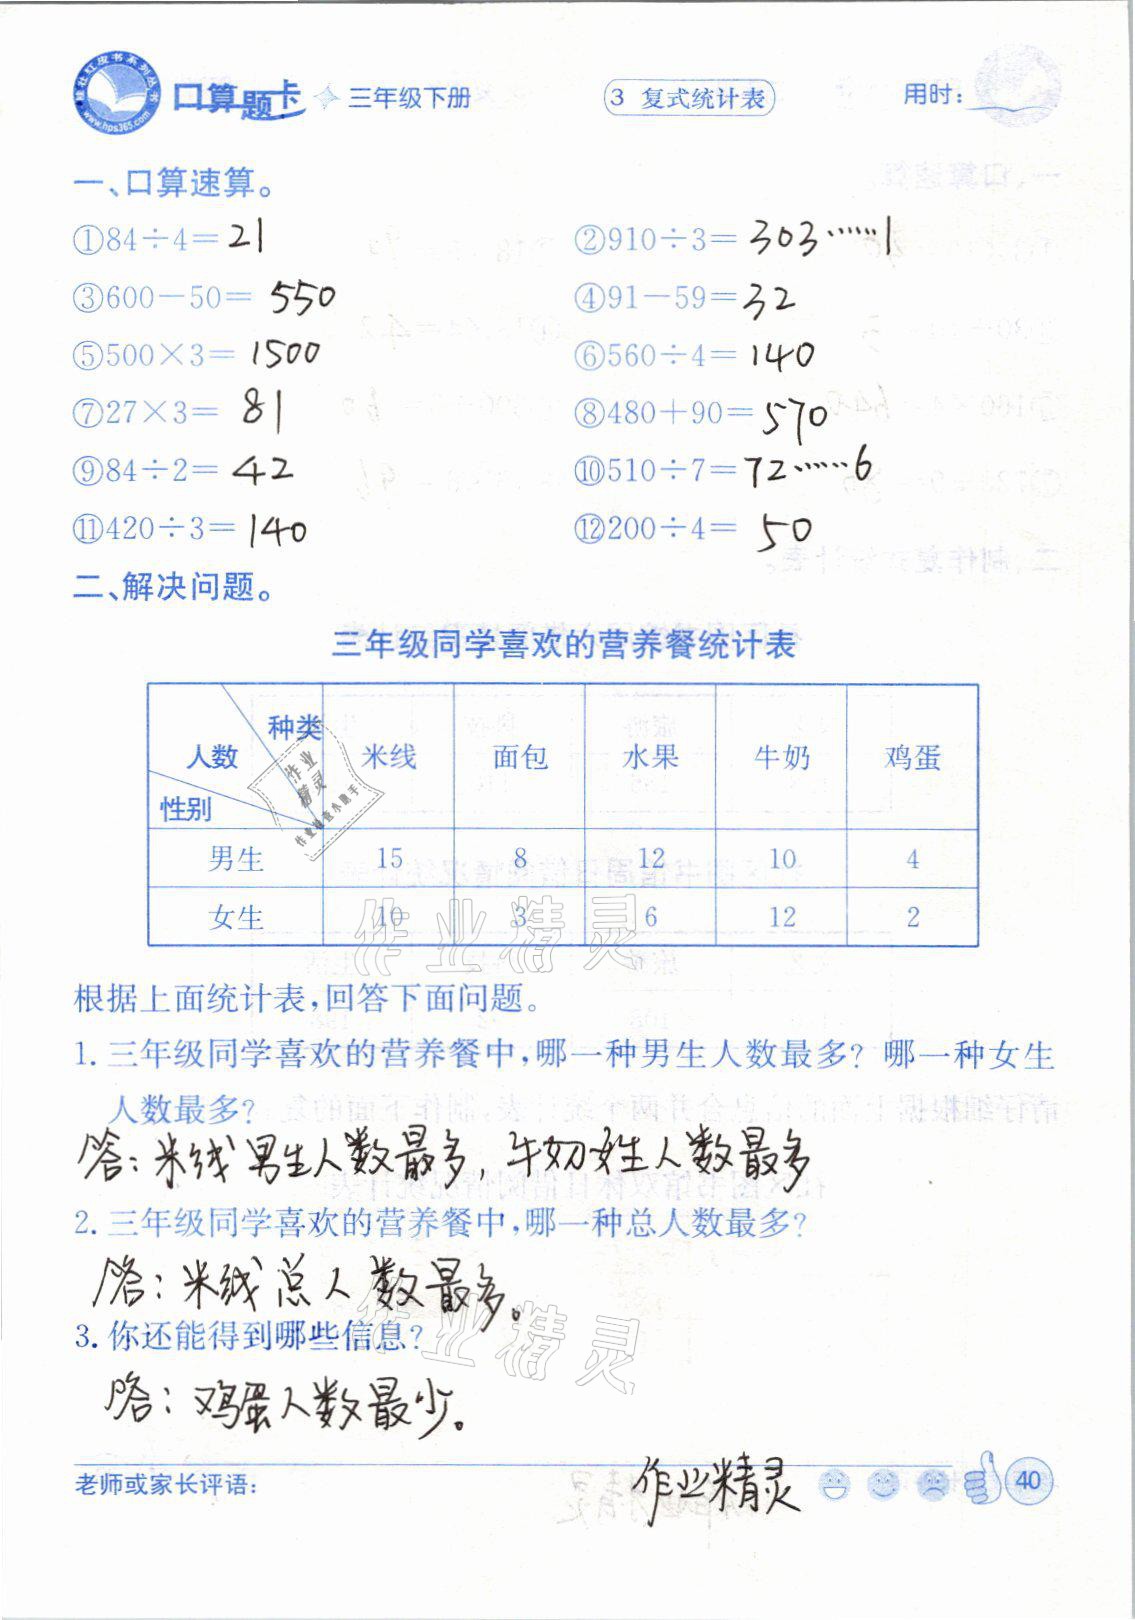 桂壮红皮书系列丛书
www.hps365.com
口算题卡 三年级下册 3 复式统计表 用时:
一、口算速算。
①84÷4=21 ②910÷3=303……1
③600-50=550 ④91-59=32
⑤500×3=1500 ⑥560÷4=140
⑦27×3=81 ⑧480+90=570
⑨84÷2=42 ⑩510÷7=72……6
⑪420÷3=140 ⑫200÷4=50
二、解决问题。
三年级同学喜欢的营养餐统计表
种类 人数 性别 米线 面包 水果 牛奶 鸡蛋
男生 15 8 12 10 4
女生 10 3 6 12 2
作业精灵
作业检查小助手
作业精灵
根据上面统计表,回答下面问题。
1. 三年级同学喜欢的营养餐中,哪一种男生人数最多? 哪一种女生
人数最多?
答:米线男生人数最多,牛奶女生人数最多
2. 三年级同学喜欢的营养餐中,哪一种总人数最多?
答:米线总人数最多。
作业精灵
3. 你还能得到哪些信息?
答:鸡蛋人数最少。
老师或家长评语: 作业精灵 40